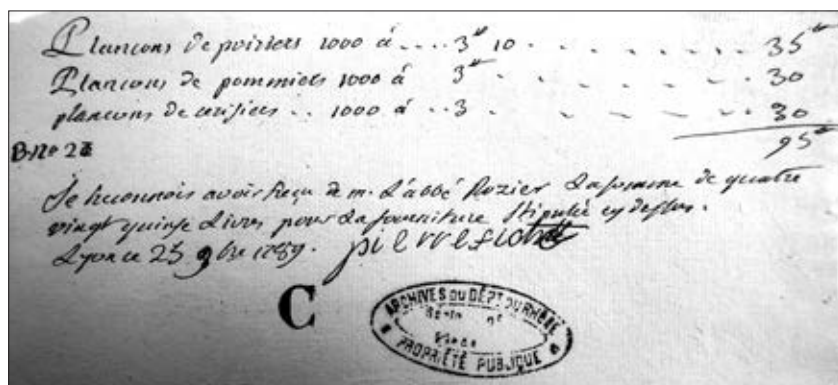 Plancons de poiriers 1000 à .... 3ᵗᵗ 10 . . . . . . 35ᵗᵗ
Plancons de pommiers 1000 à 3ᵗᵗ . . . . . . 30
plancons de cerisiers .. 1000 à .. 3 . . . . . . 30
95ᵗᵗ
B.No 2
Je reconnois avoir Reçu de m. L'abbé Rozier La somme de quatre
vingt quinse Livres pour La fourniture Stipulée cy dessus.
Lyon ce 25 9bre 1789. pierre
C
ARCHIVES DU DÉPT DU RHÔNE
Série
PROPRIÉTÉ PUBLIQUE